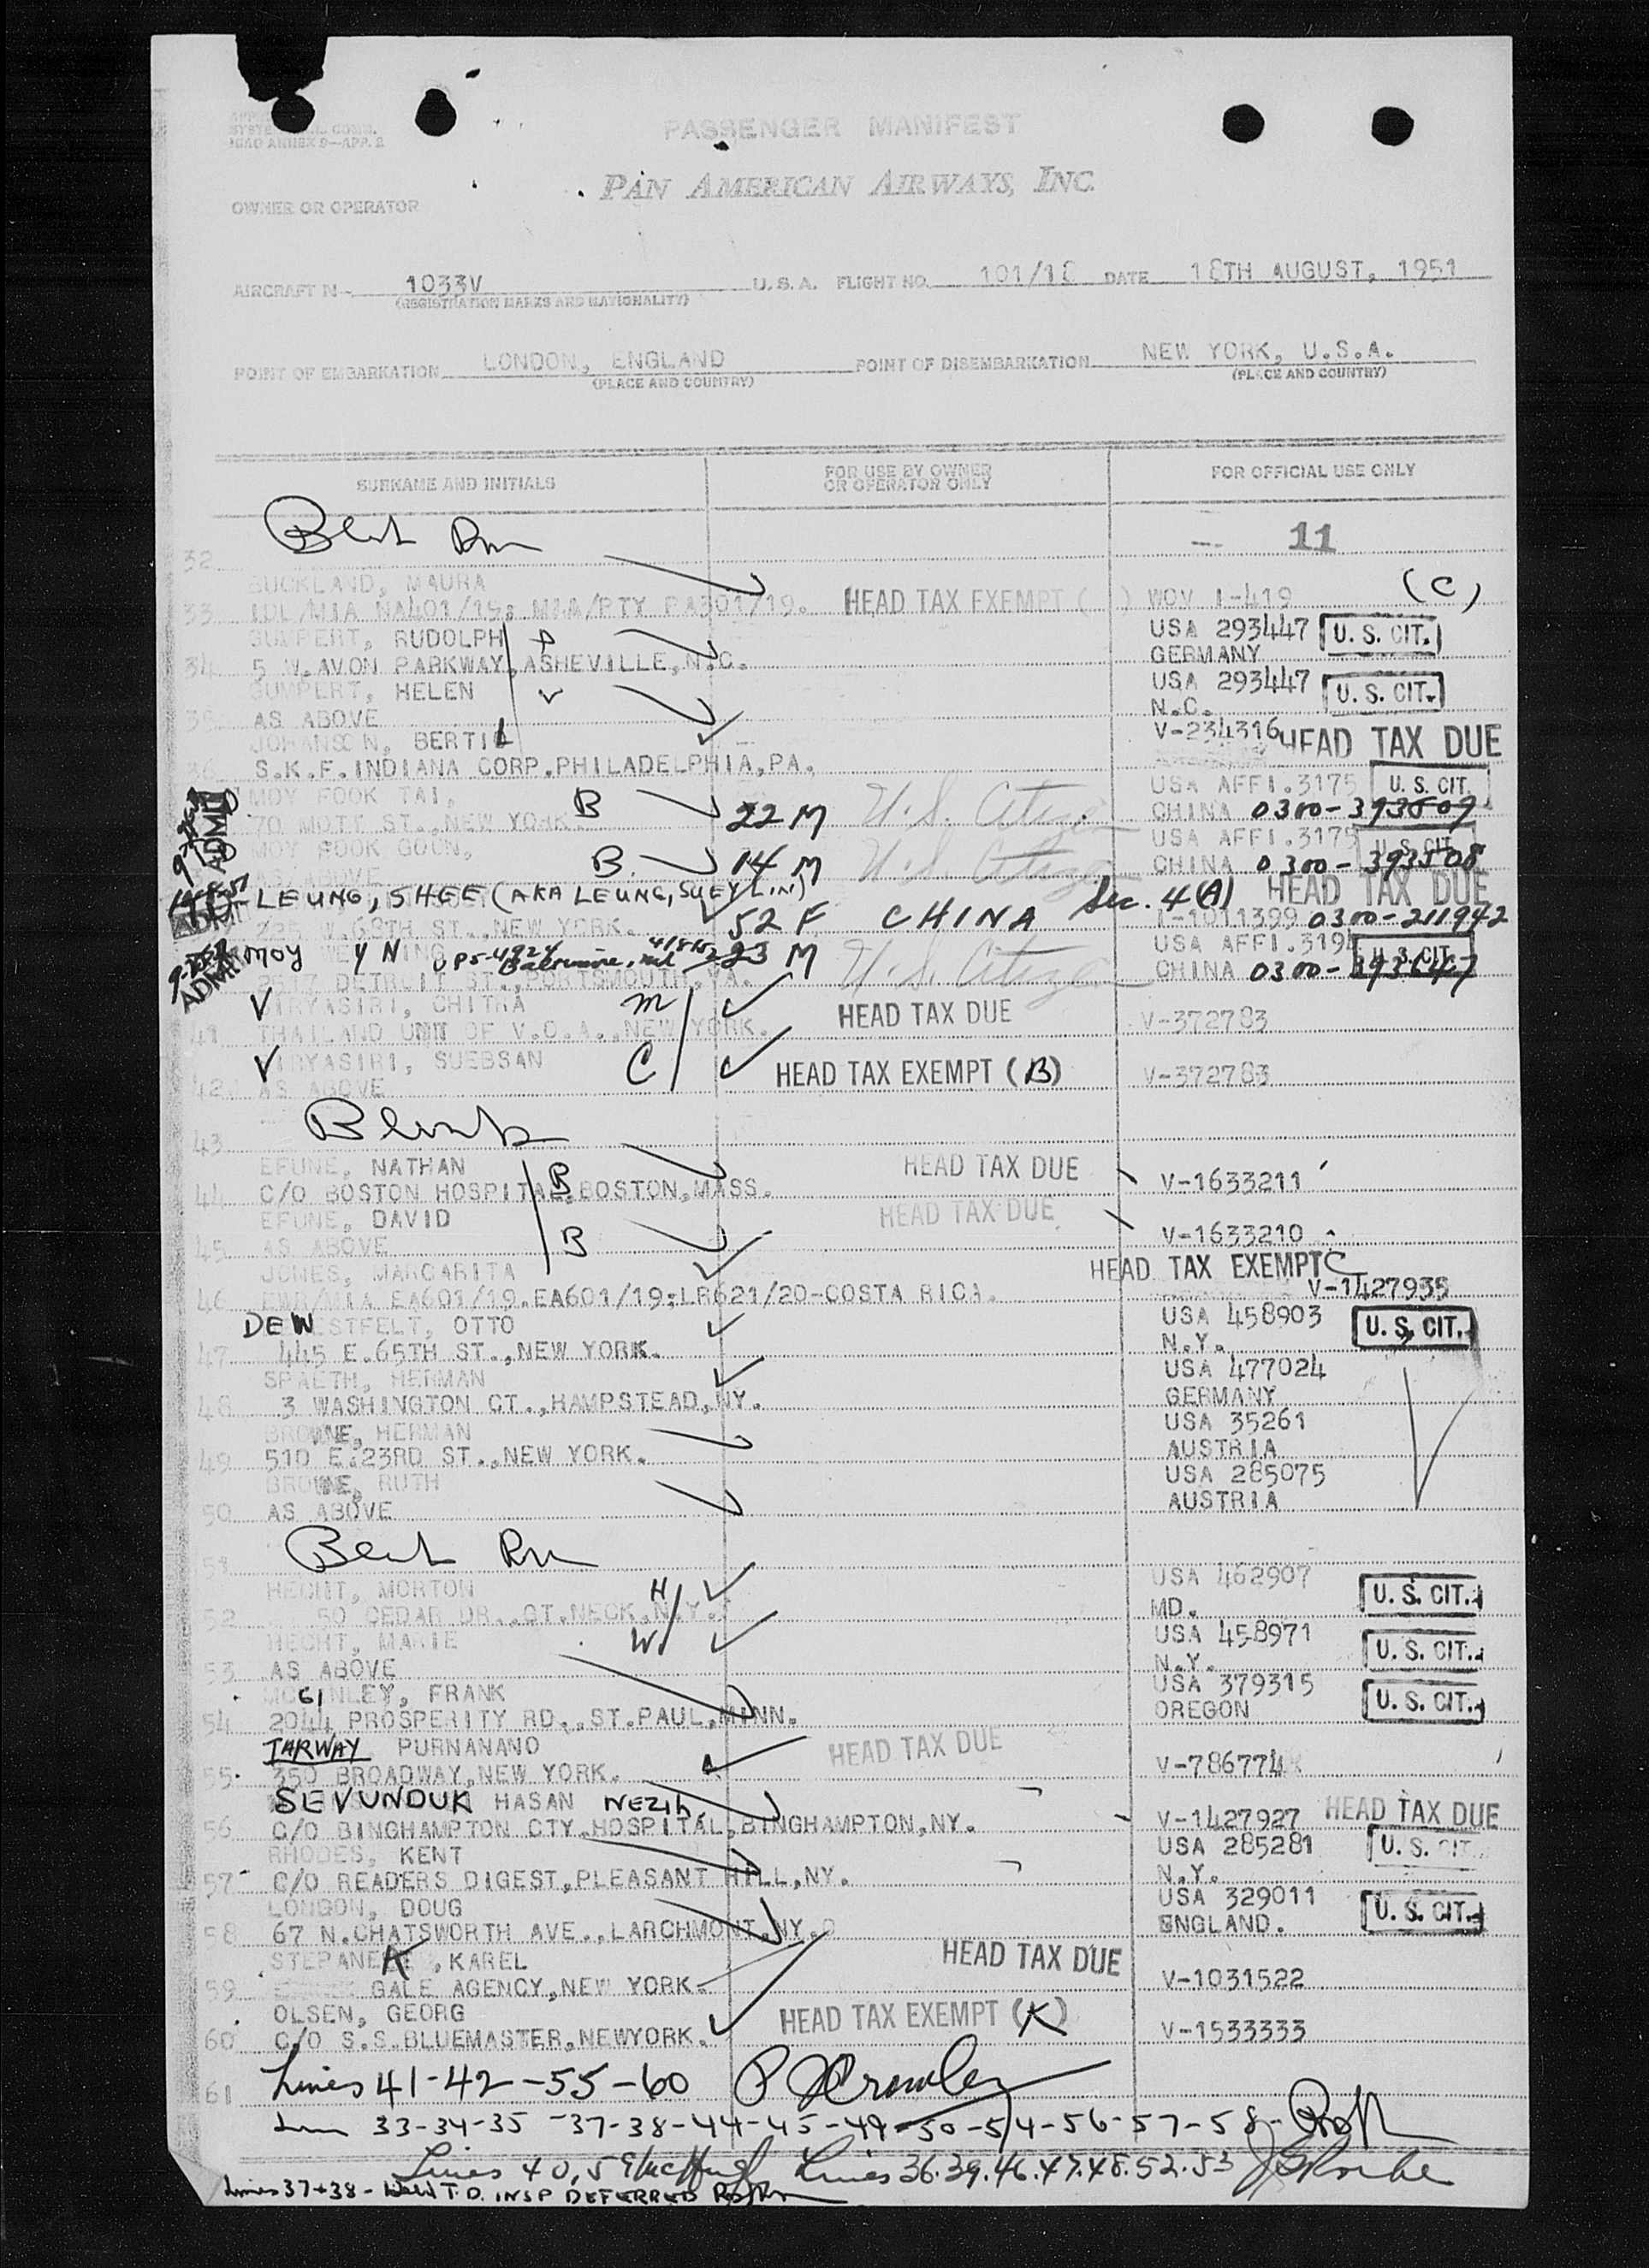 SYSTE L. COMM.
ICAO ANNEX 9—APP. 2
PASSENGER MANIFEST
PAN AMERICAN AIRWAYS, INC.
OWNER OR OPERATOR
AIRCRAFT N- 1033V U.S.A. FLIGHT NO. 101/18 DATE 18TH AUGUST, 1951
(REGISTRATION MARKS AND NATIONALITY)
POINT OF EMBARKATION LONDON, ENGLAND POINT OF DISEMBARKATION NEW YORK, U.S.A.
(PLACE AND COUNTRY) (PLACE AND COUNTRY)
SURNAME AND INITIALS FOR USE BY OWNER OR OPERATOR ONLY FOR OFFICIAL USE ONLY
32 11
BUCKLAND, MAURA (C)
33 IDL/MIA NA401/19; MIA/PTY PA301/19. HEAD TAX EXEMPT ( ) WOV I-419
GUMPERT, RUDOLPH USA 293447 U. S. CIT.
34 5 W.AVON PARKWAY,ASHEVILLE,N.C. GERMANY
GUMPERT, HELEN USA 293447 U. S. CIT.
35 AS ABOVE N.C.
JOHANSON, BERTIL V-234316 HEAD TAX DUE
S.K.F.INDIANA CORP.PHILADELPHIA,PA.
MOY FOOK TAI, B USA AFFI.3175 U. S. CIT.
70 MOTT ST.,NEW YORK. 22 M U.S. Citizen CHINA 0300-393509
MOY FOOK GOON, USA AFFI.3175 U. S. CIT.
AS ABOVE B. 14 M U.S. Citizen CHINA 0300-393508
LEUNG, SHEE (AKA LEUNG, SUEY LIN) Sec. 4(A) HEAD TAX DUE
W.68TH ST.,NEW YORK. 52 F CHINA I-1011399 0300-211942
MOY Y N ING 23 M U.S. Citizen USA AFFI.319 U. S. CIT.
DETROIT ST.,PORTSMOUTH,VA. CHINA 0300-
VIRYASIRI, CHITRA M
41 THAILAND UNIT OF V.O.A.,NEW YORK. HEAD TAX DUE V-372783
VIRYASIRI, SUEBSAN C
42 AS ABOVE HEAD TAX EXEMPT (B) V-372783
43 Blank
EFUNE, NATHAN B HEAD TAX DUE
44 C/O BOSTON HOSPITAL,BOSTON,MASS. V-1633211
EFUNE, DAVID HEAD TAX DUE
45 AS ABOVE B V-1633210
JONES, MARGARITA HEAD TAX EXEMPT C
46 EWR/MIA EA601/19.EA601/19;LR621/20-COSTA RICA. V-1427935
DEW STFELT, OTTO USA 458903 U. S. CIT.
47 445 E.65TH ST.,NEW YORK. N.Y.
SPAETH, HERMAN USA 477024
48 3 WASHINGTON CT.,HAMPSTEAD,NY. GERMANY
BROWNE, HERMAN USA 35261
49 510 E.23RD ST.,NEW YORK. AUSTRIA
BROWNE, RUTH USA 285075
50 AS ABOVE AUSTRIA
51
HECHT, MORTON H USA 462907 U. S. CIT.
52 50 CEDAR DR.,GT.NECK,N.Y. MD.
HECHT, MARIE W USA 458971 U. S. CIT.
53 AS ABOVE N.Y.
MCGINLEY, FRANK USA 379315 U. S. CIT.
54 2044 PROSPERITY RD.,ST.PAUL,MINN. OREGON
TARWAY PURNANAND HEAD TAX DUE
55 350 BROADWAY,NEW YORK. V-786774
SEVUNDUK HASAN NEZIh HEAD TAX DUE
56 C/O BINGHAMPTON CTY.HOSPITAL,BINGHAMPTON,NY. V-1427927
RHODES, KENT USA 285281 U. S. CIT.
57 C/O READERS DIGEST,PLEASANT HILL,NY. N.Y.
LONDON, DOUG USA 329011 U. S. CIT.
58 67 N.CHATSWORTH AVE.,LARCHMONT,NY. ENGLAND.
STEPANEK, KAREL HEAD TAX DUE
59 GALE AGENCY,NEW YORK. V-1031522
OLSEN, GEORG HEAD TAX EXEMPT (K)
60 C/O S.S.BLUEMASTER,NEWYORK. V-1533333
61 Lines 41-42-55-60
33-34-35-37-38-44-45-49-50-54-56-57-58-
Lines 40,59 Lines 36.39.46.47.48.52.53
Lines 37+38 - T.D. INSP DEFERRED